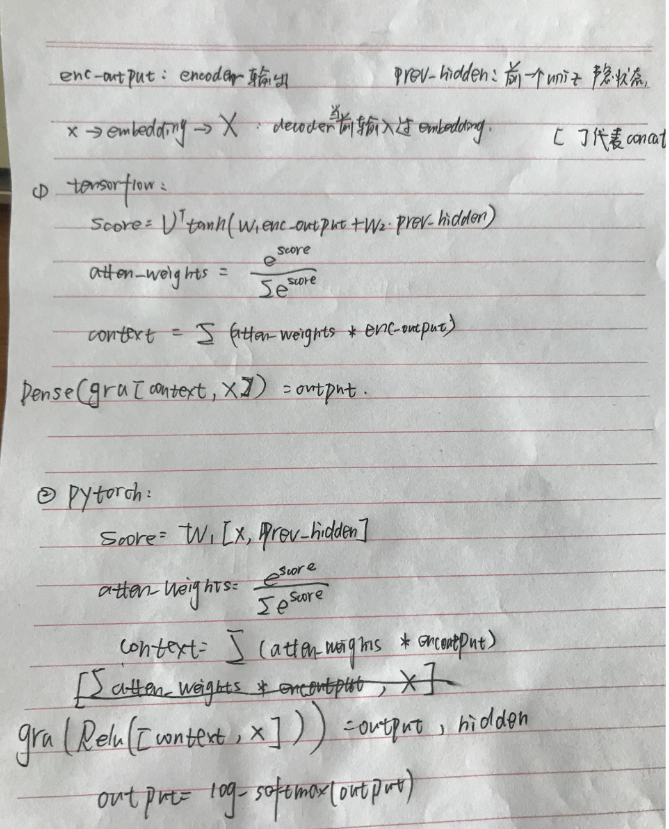 enc-output: encoder 输出 prev-hidden: 前一个unit 隐状态,
x → embedding → X : decoder当前输入过 embedding. [ ]代表concat
① tensorflow:
score = V^T tanh(W₁ enc-output + W₂· prev-hidden)
atten-weights = e^score / Σe^score
context = Σ (atten-weights * enc-output)
Dense(gru[context, X]) = output.
② pytorch:
score = W₁ [X, prev-hidden]
atten-weights = e^score / Σe^score
context = Σ (atten-weighs * encoutput)
[Σ atten-weights * encoutput, X]
gru(Relu([context, x])) = output, hidden
output = log-softmax(output)